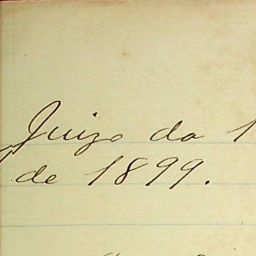 Juizo da 1
de 1899.